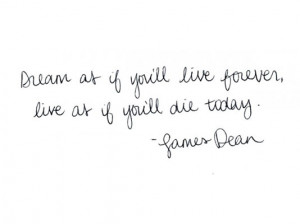 Dream as if you'll live forever,
live as if you'll die today.
-James Dean